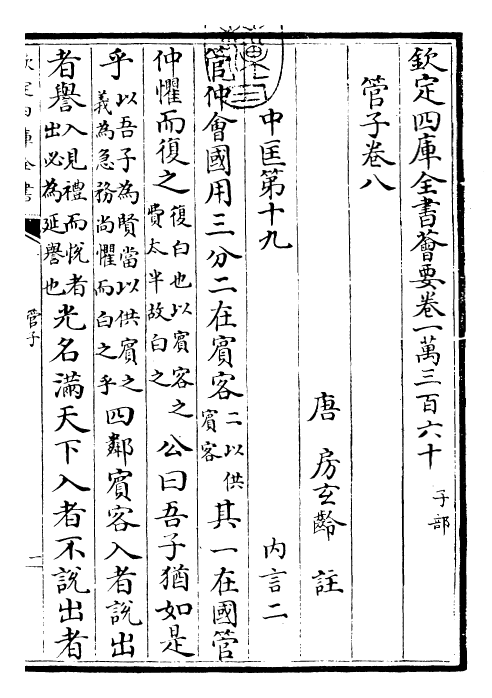 欽定四庫全書薈要卷一萬三百六十 子部
管子卷八
唐 房玄齡 註
中匡第十九 內言二
管仲會國用三分二在賓客二以供賓客其一在國管
仲懼而復之復白也以賓客之費太半故白之公曰吾子猶如是
乎以吾子為賢當以供賓之義為急務尚懼而白之乎四鄰賓客入者說出
者譽入見禮而悅者出必為延譽也光名滿天下入者不說出者
管子